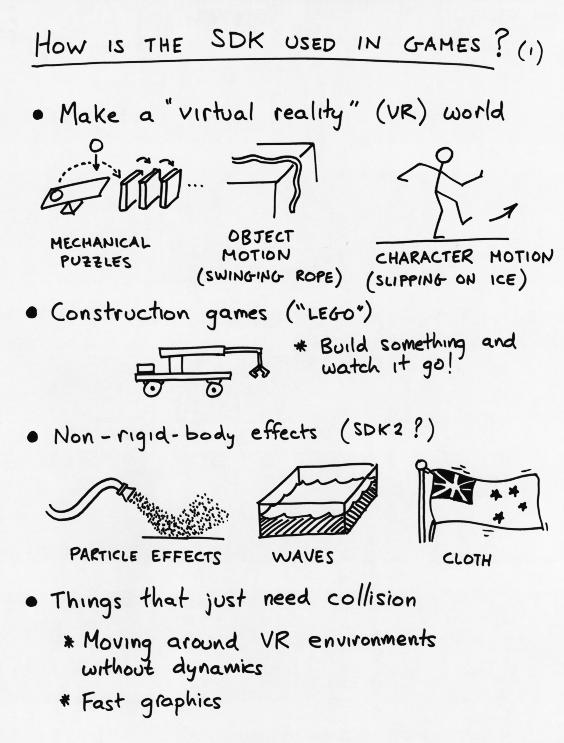 HOW IS THE SDK USED IN GAMES? (1)
• Make a "virtual reality" (VR) world
MECHANICAL
PUZZLES
...
OBJECT
MOTION
(SWINGING ROPE)
CHARACTER MOTION
(SLIPPING ON ICE)
• Construction games ("LEGO")
* Build something and
watch it go!
• Non-rigid-body effects (SDK2?)
PARTICLE EFFECTS
WAVES
CLOTH
• Things that just need collision
* Moving around VR environments
without dynamics
* Fast graphics